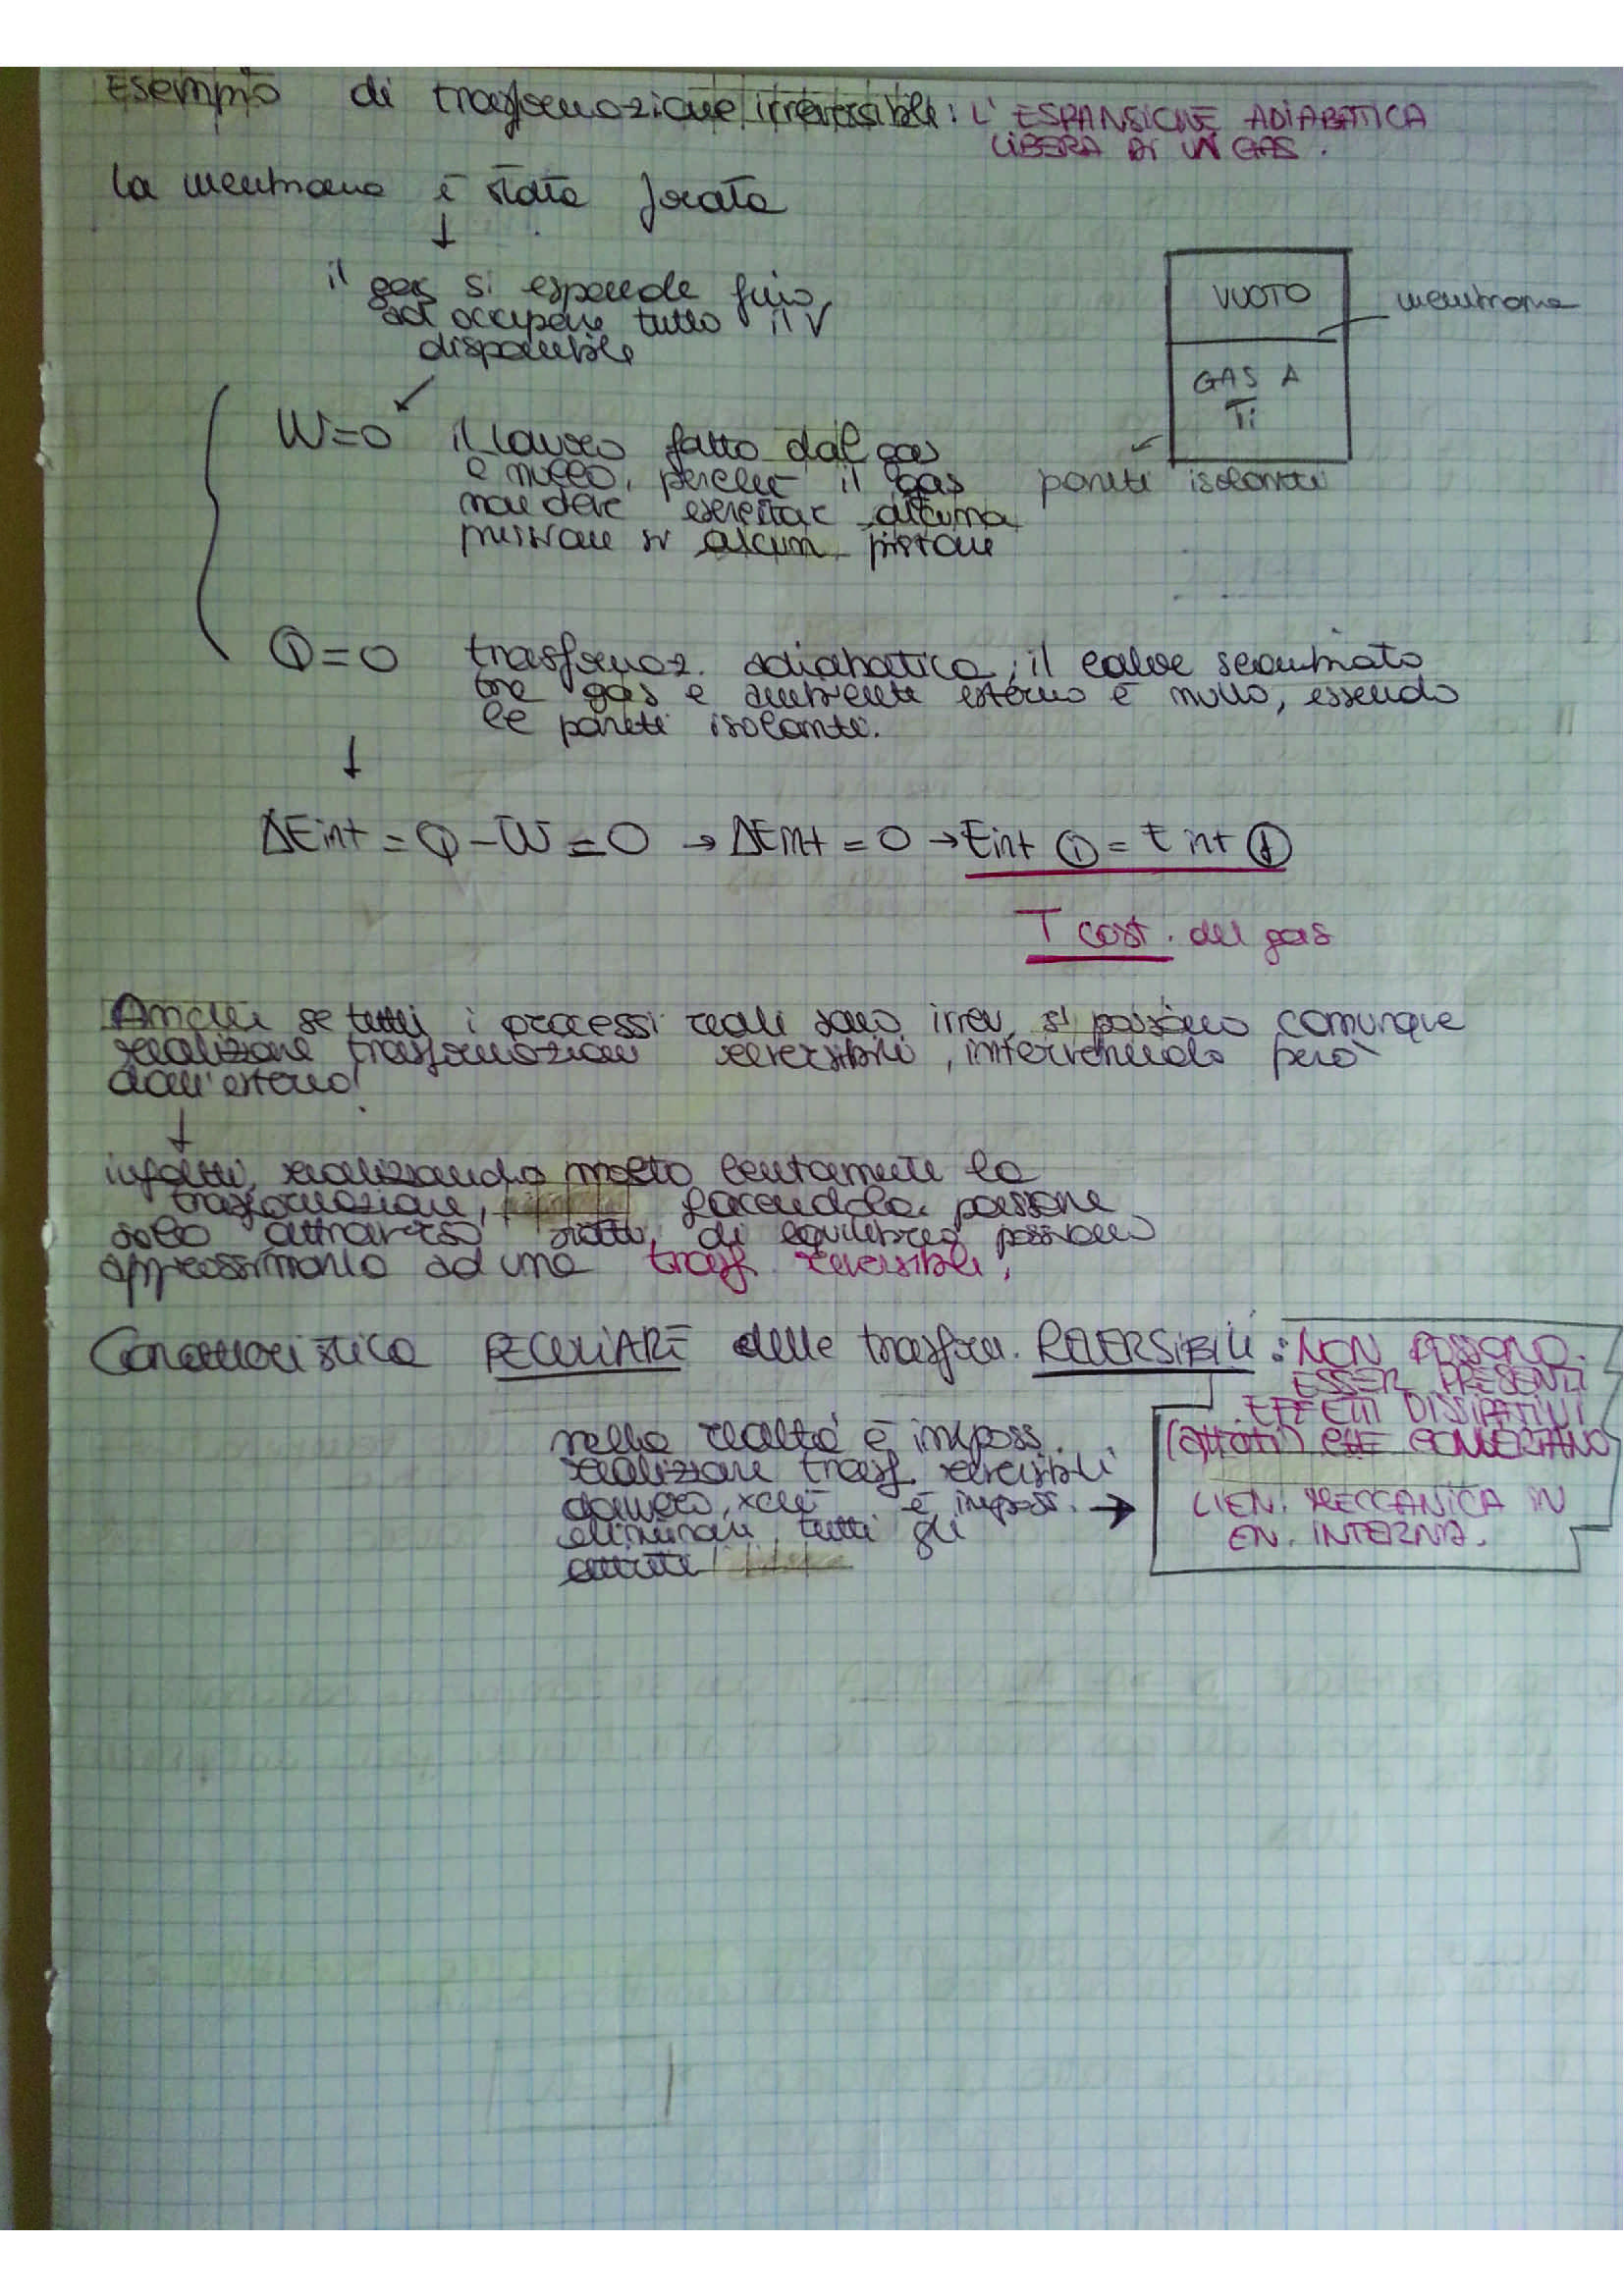 Esempio di trasformazione irreversibile: L'ESPANSIONE ADIABATICA
LIBERA DI UN GAS.
la membrana è stata forata
↓
il gas si espande fino
ad occupare tutto il V
disponibile
VUOTO
membrana
GAS A
Ti
pareti isolanti
W=0 il lavoro fatto dal gas
è nullo, perché il gas
non deve esercitare alcuna
pressione su alcun pistone
Q=0 trasformaz. adiabatica, il calore scambiato
tra gas e ambiente esterno è nullo, essendo
le pareti isolanti.
↓
ΔEint = Q - W = 0 → ΔEint = 0 → Eint i = Eint f
T cost. del gas
Anche se tutti i processi reali sono irrev, si possono comunque
realizzare trasformazioni reversibili, intervenendo però
dall'esterno!
↓
infatti, realizzando molto lentamente la
trasformazione, facendola passare
solo attraverso stati di equilibrio possiamo
approssimarla ad una trasf. reversibile,
Caratteristica PECULIARE delle trasform. REVERSIBILI: NON POSSONO
ESSER PRESENTI
EFFETTI DISSIPATIVI
(attriti) CHE CONVERTANO
L'EN. MECCANICA IN
EN. INTERNA.
nella realtà è imposs.
realizzare trasf. reversibili
davvero, xché è imposs. →
eliminare tutti gli
attriti